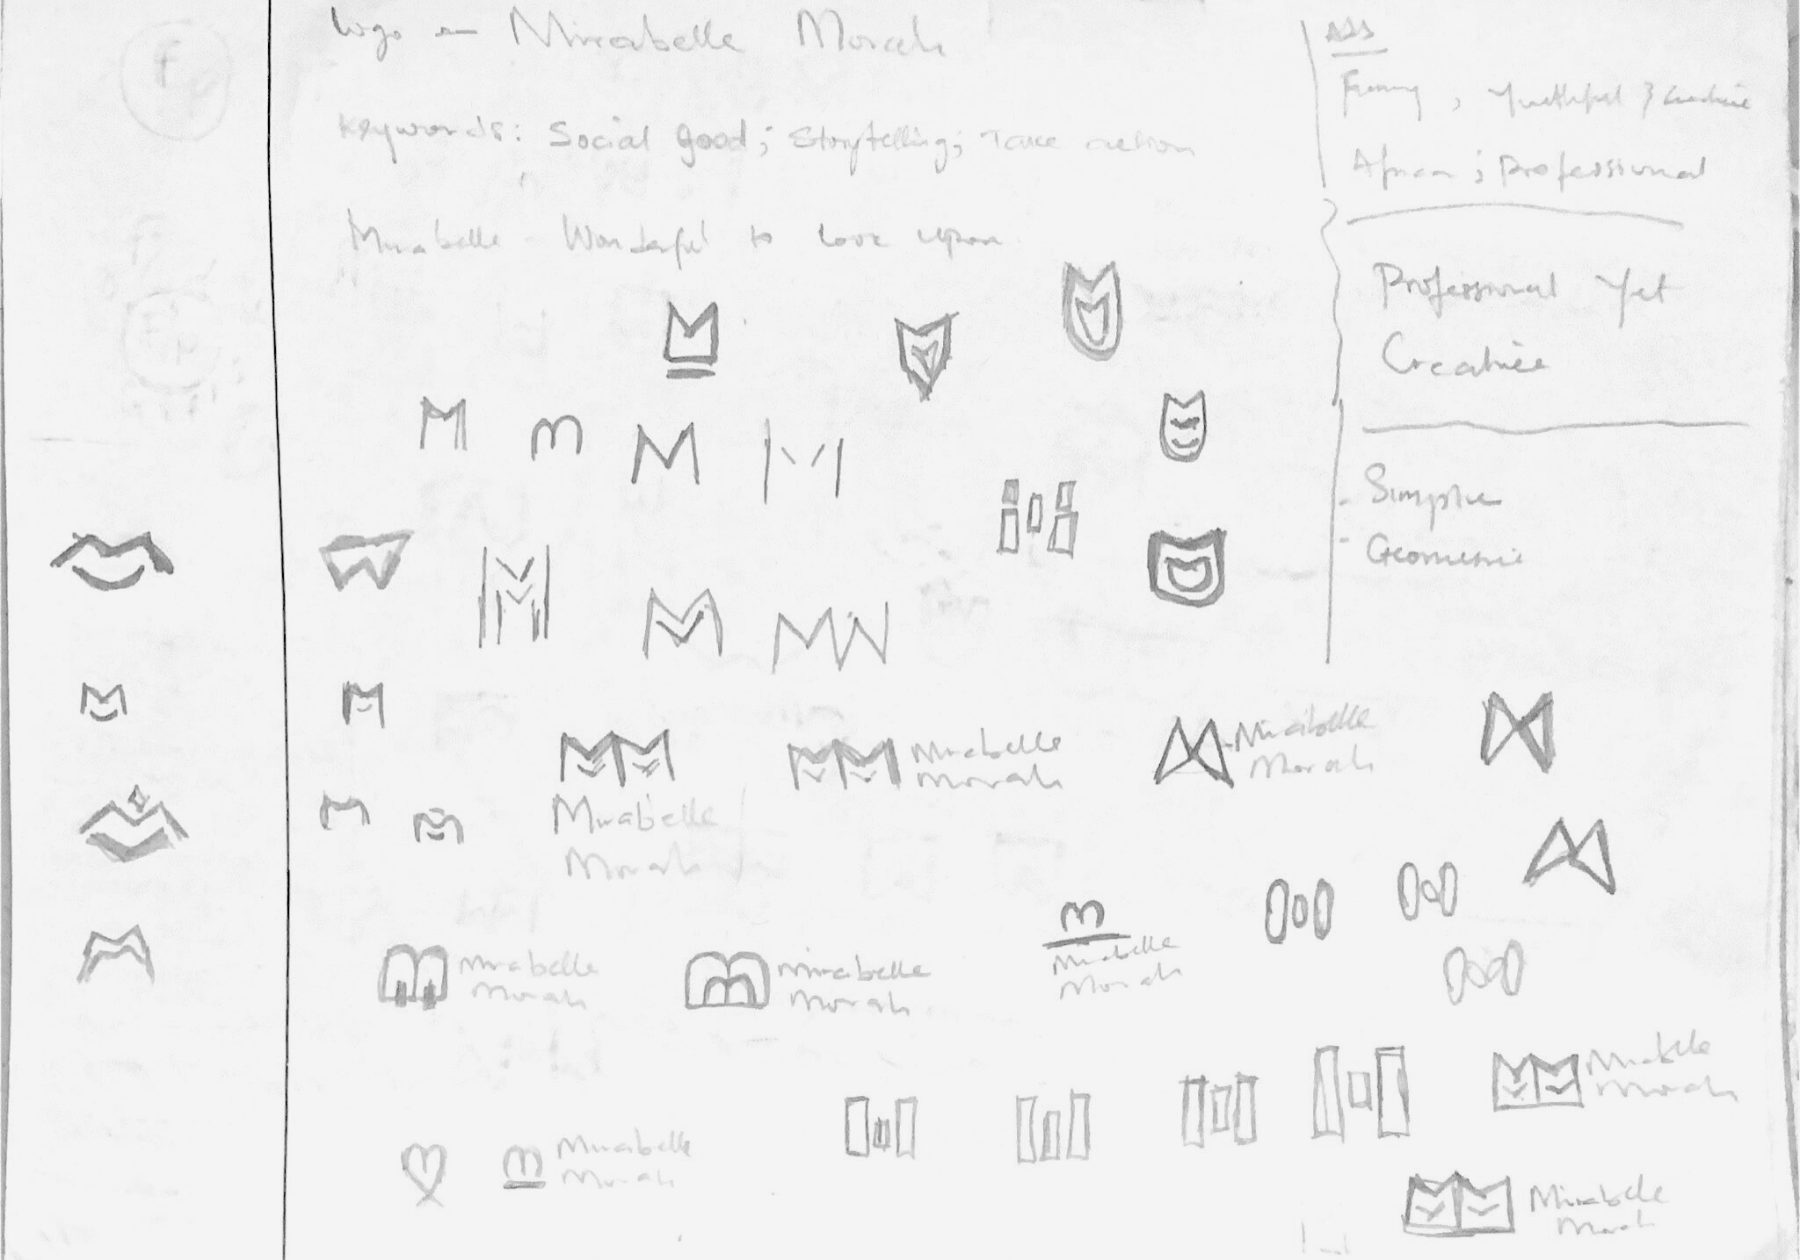 Logo — Mirabelle Morah
Keywords: Social good; Storytelling; Take action
Mirabelle - Wonderful to look upon
ADJ
Funny, Youthful & Creative
African; Professional
Professional Yet
Creative
- Simple
- Geometric
Mirabelle
Morah
Mirabelle
Morah
Mirabelle
Morah
Mirabelle
Morah
Mirabelle
Morah
m
Mirabelle
Morah
Mirabelle
Morah
m
Mirabelle
Morah
Mirabelle
Morah